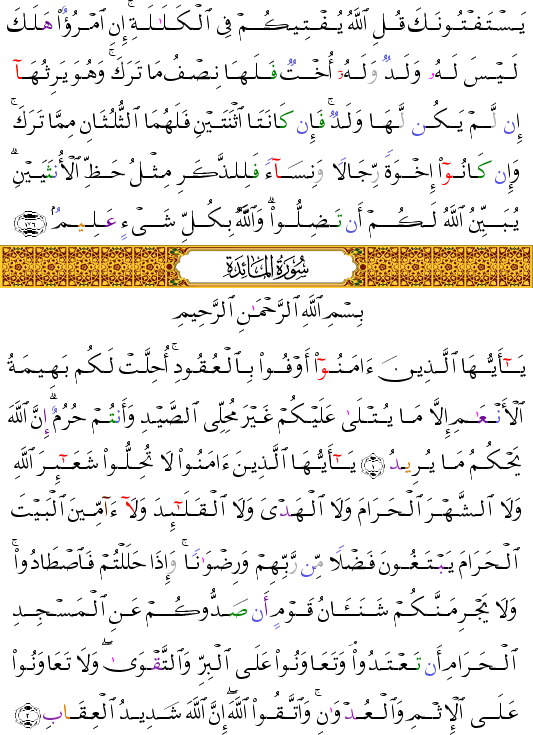 يَسْتَفْتُونَكَ قُلِ ٱللَّهُ يُفْتِيكُمْ فِى ٱلْكَلَـٰلَةِ ۚ إِنِ ٱمْرُؤٌا۟ هَلَكَ
لَيْسَ لَهُۥ وَلَدٌ وَلَهُۥٓ أُخْتٌ فَلَهَا نِصْفُ مَا تَرَكَ ۚ وَهُوَ يَرِثُهَآ
إِن لَّمْ يَكُن لَّهَا وَلَدٌ ۚ فَإِن كَانَتَا ٱثْنَتَيْنِ فَلَهُمَا ٱلثُّلُثَانِ مِمَّا تَرَكَ ۚ
وَإِن كَانُوٓا۟ إِخْوَةً رِّجَالًا وَنِسَآءً فَلِلذَّكَرِ مِثْلُ حَظِّ ٱلْأُنثَيَيْنِ ۗ
يُبَيِّنُ ٱللَّهُ لَكُمْ أَن تَضِلُّوا۟ ۗ وَٱللَّهُ بِكُلِّ شَىْءٍ عَلِيمٌۢ ﴿١٧٦﴾
سُورَةُ المَائِدَةِ
بِسْمِ ٱللَّهِ ٱلرَّحْمَـٰنِ ٱلرَّحِيمِ
يَـٰٓأَيُّهَا ٱلَّذِينَ ءَامَنُوٓا۟ أَوْفُوا۟ بِٱلْعُقُودِ ۚ أُحِلَّتْ لَكُم بَهِيمَةُ
ٱلْأَنْعَـٰمِ إِلَّا مَا يُتْلَىٰ عَلَيْكُمْ غَيْرَ مُحِلِّى ٱلصَّيْدِ وَأَنتُمْ حُرُمٌ ۗ إِنَّ ٱللَّهَ
يَحْكُمُ مَا يُرِيدُ ﴿١﴾ يَـٰٓأَيُّهَا ٱلَّذِينَ ءَامَنُوا۟ لَا تُحِلُّوا۟ شَعَـٰٓئِرَ ٱللَّهِ
وَلَا ٱلشَّهْرَ ٱلْحَرَامَ وَلَا ٱلْهَدْىَ وَلَا ٱلْقَلَـٰٓئِدَ وَلَآ ءَآمِّينَ ٱلْبَيْتَ
ٱلْحَرَامَ يَبْتَغُونَ فَضْلًا مِّن رَّبِّهِمْ وَرِضْوَٰنًا ۚ وَإِذَا حَلَلْتُمْ فَٱصْطَادُوا۟ ۚ
وَلَا يَجْرِمَنَّكُمْ شَنَـَٔانُ قَوْمٍ أَن صَدُّوكُمْ عَنِ ٱلْمَسْجِدِ
ٱلْحَرَامِ أَن تَعْتَدُوا۟ ۘ وَتَعَاوَنُوا۟ عَلَى ٱلْبِرِّ وَٱلتَّقْوَىٰ ۖ وَلَا تَعَاوَنُوا۟
عَلَى ٱلْإِثْمِ وَٱلْعُدْوَٰنِ ۚ وَٱتَّقُوا۟ ٱللَّهَ ۖ إِنَّ ٱللَّهَ شَدِيدُ ٱلْعِقَابِ ﴿٢﴾